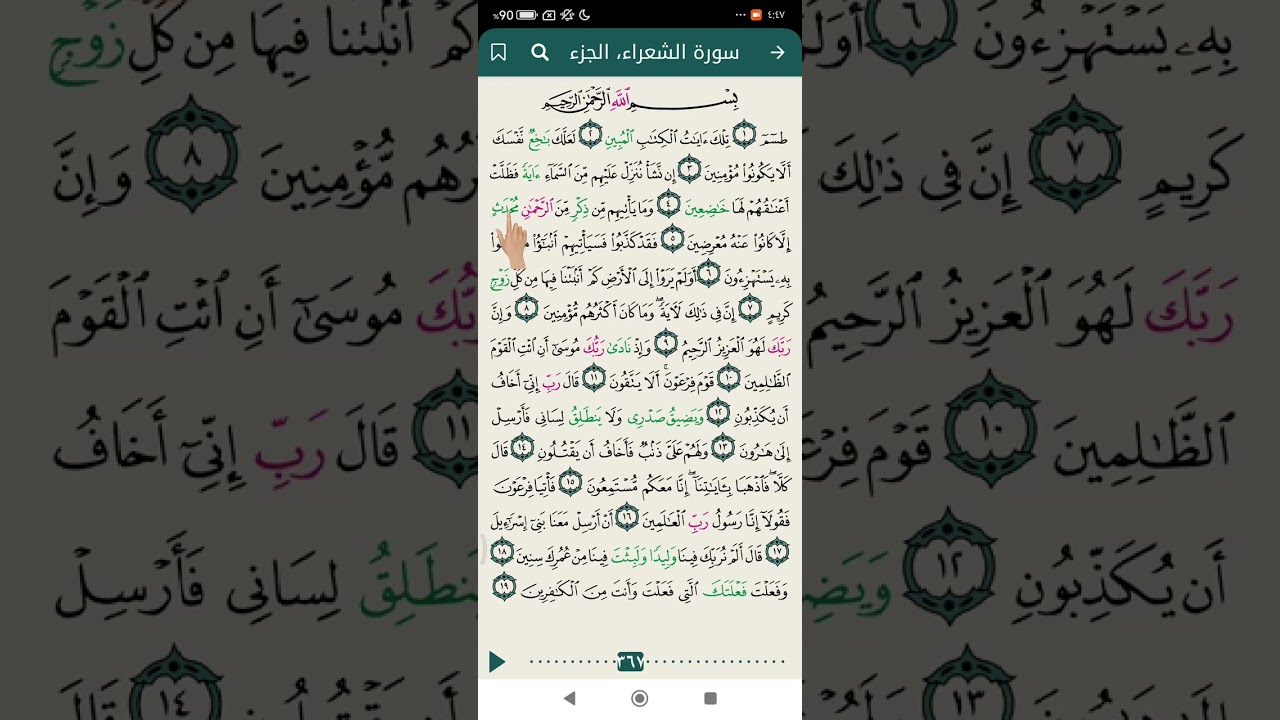 ٤:٤٧
%90
سورة الشعراء، الجزء
بِسْمِ ٱللَّهِ ٱلرَّحْمَٰنِ ٱلرَّحِيمِ
طسٓمٓ ١ تِلْكَ ءَايَٰتُ ٱلْكِتَٰبِ ٱلْمُبِينِ ٢ لَعَلَّكَ بَٰخِعٌ نَّفْسَكَ
أَلَّا يَكُونُوا۟ مُؤْمِنِينَ ٣ إِن نَّشَأْ نُنَزِّلْ عَلَيْهِم مِّنَ ٱلسَّمَآءِ ءَايَةً فَظَلَّتْ
أَعْنَٰقُهُمْ لَهَا خَٰضِعِينَ ٤ وَمَا يَأْتِيهِم مِّن ذِكْرٍ مِّنَ ٱلرَّحْمَٰنِ مُحْدَثٍ
إِلَّا كَانُوا۟ عَنْهُ مُعْرِضِينَ ٥ فَقَدْ كَذَّبُوا۟ فَسَيَأْتِيهِمْ أَنۢبَٰٓؤُا۟
بِهِۦ يَسْتَهْزِءُونَ ٦ أَوَلَمْ يَرَوْا۟ إِلَى ٱلْأَرْضِ كَمْ أَنۢبَتْنَا فِيهَا مِن كُلِّ زَوْجٍ
كَرِيمٍ ٧ إِنَّ فِى ذَٰلِكَ لَءَايَةً ۖ وَمَا كَانَ أَكْثَرُهُم مُّؤْمِنِينَ ٨ وَإِنَّ
رَبَّكَ لَهُوَ ٱلْعَزِيزُ ٱلرَّحِيمُ ٩ وَإِذْ نَادَىٰ رَبُّكَ مُوسَىٰٓ أَنِ ٱئْتِ ٱلْقَوْمَ
ٱلظَّٰلِمِينَ ١٠ قَوْمَ فِرْعَوْنَ ۚ أَلَا يَتَّقُونَ ١١ قَالَ رَبِّ إِنِّىٓ أَخَافُ
أَن يُكَذِّبُونِ ١٢ وَيَضِيقُ صَدْرِى وَلَا يَنطَلِقُ لِسَانِى فَأَرْسِلْ
إِلَىٰ هَٰرُونَ ١٣ وَلَهُمْ عَلَىَّ ذَنۢبٌ فَأَخَافُ أَن يَقْتُلُونِ ١٤ قَالَ
كَلَّا ۖ فَٱذْهَبَا بِـَٔايَٰتِنَآ ۖ إِنَّا مَعَكُم مُّسْتَمِعُونَ ١٥ فَأْتِيَا فِرْعَوْنَ
فَقُولَآ إِنَّا رَسُولُ رَبِّ ٱلْعَٰلَمِينَ ١٦ أَنْ أَرْسِلْ مَعَنَا بَنِىٓ إِسْرَٰٓءِيلَ
١٧ قَالَ أَلَمْ نُرَبِّكَ فِينَا وَلِيدًا وَلَبِثْتَ فِينَا مِنْ عُمُرِكَ سِنِينَ ١٨
وَفَعَلْتَ فَعْلَتَكَ ٱلَّتِى فَعَلْتَ وَأَنتَ مِنَ ٱلْكَٰفِرِينَ ١٩
٣٦٧